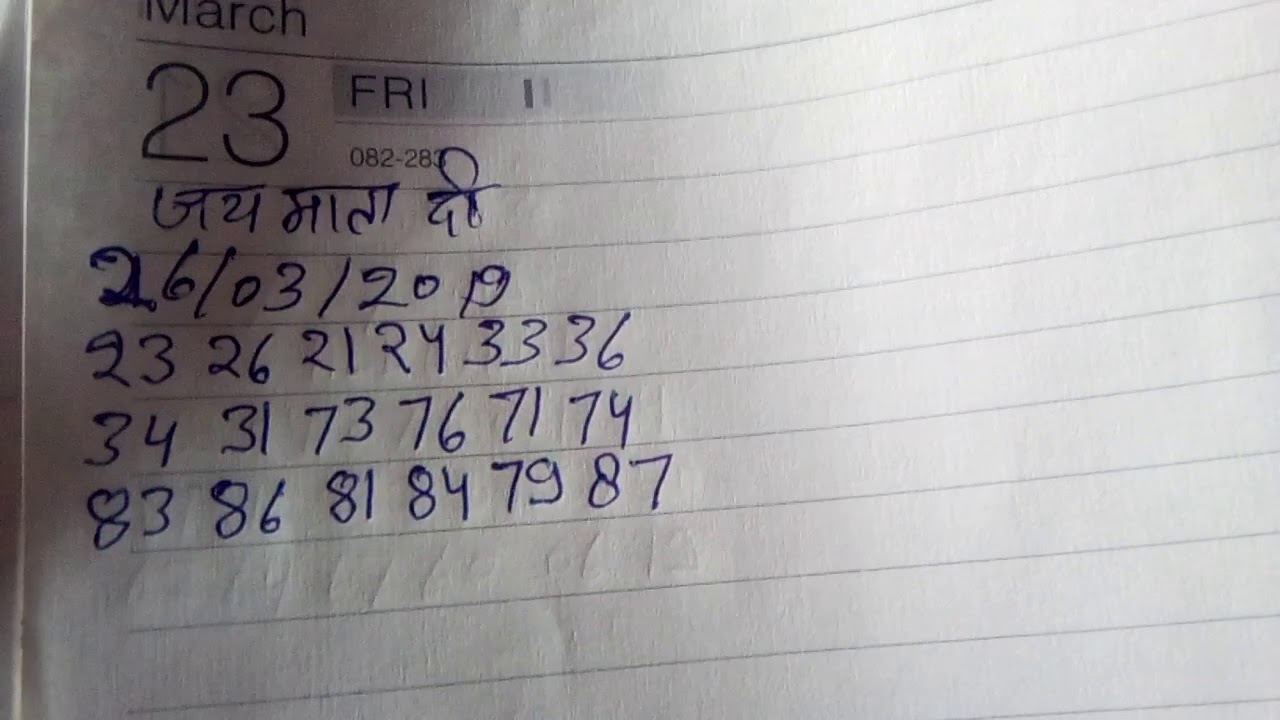 March
23 FRI
082-283
जय माता दी
26/03/2019
23 26 21 24 33 36
34 31 73 76 71 74
83 86 81 84 79 87